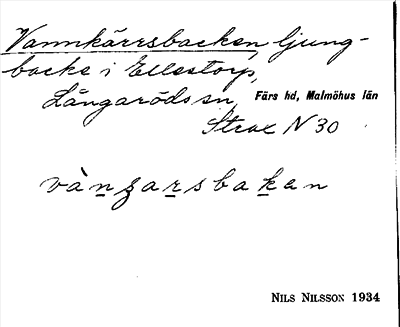 Vannkärrsbacken, ljung-
backe i Ellestorp,
Långaröds sn, Färs hd, Malmöhus län
Strax N 30
vànʒarsbakan
NILS NILSSON 1934